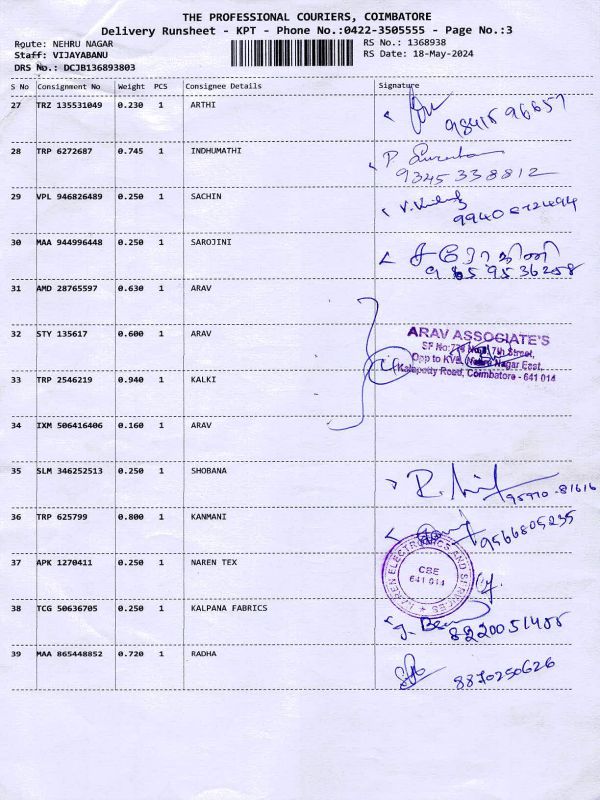 THE PROFESSIONAL COURIERS, COIMBATORE
Delivery Runsheet - KPT - Phone No.:0422-3505555 - Page No.:3
Route: NEHRU NAGAR RS No.: 1368938
Staff: VIJAYABANU RS Date: 18-May-2024
DRS No.: DCJB136893803
S No Consignment No Weight PCS Consignee Details Signature
27 TRZ 135531049 0.230 1 ARTHI
28 TRP 6272687 0.745 1 INDHUMATHI
9345338812
29 VPL 946826489 0.250 1 SACHIN
30 MAA 944996448 0.250 1 SAROJINI சரோஜினி
31 AMD 28765597 0.630 1 ARAV
32 STY 135617 0.600 1 ARAV
ARAV ASSOCIATE'S
7th Street,
Opp to KVB, Nehru Nagar East,
Kalapatty Road, Coimbatore - 641 014
33 TRP 2546219 0.940 1 KALKI
34 IXM 506416406 0.160 1 ARAV
35 SLM 346252513 0.250 1 SHOBANA
36 TRP 625799 0.800 1 KANMANI
9566805235
37 APK 1270411 0.250 1 NAREN TEX
ELECTRONICS AND SERVICES
CBE
641 014
38 TCG 50636705 0.250 1 KALPANA FABRICS
39 MAA 865448852 0.720 1 RADHA
8870250626